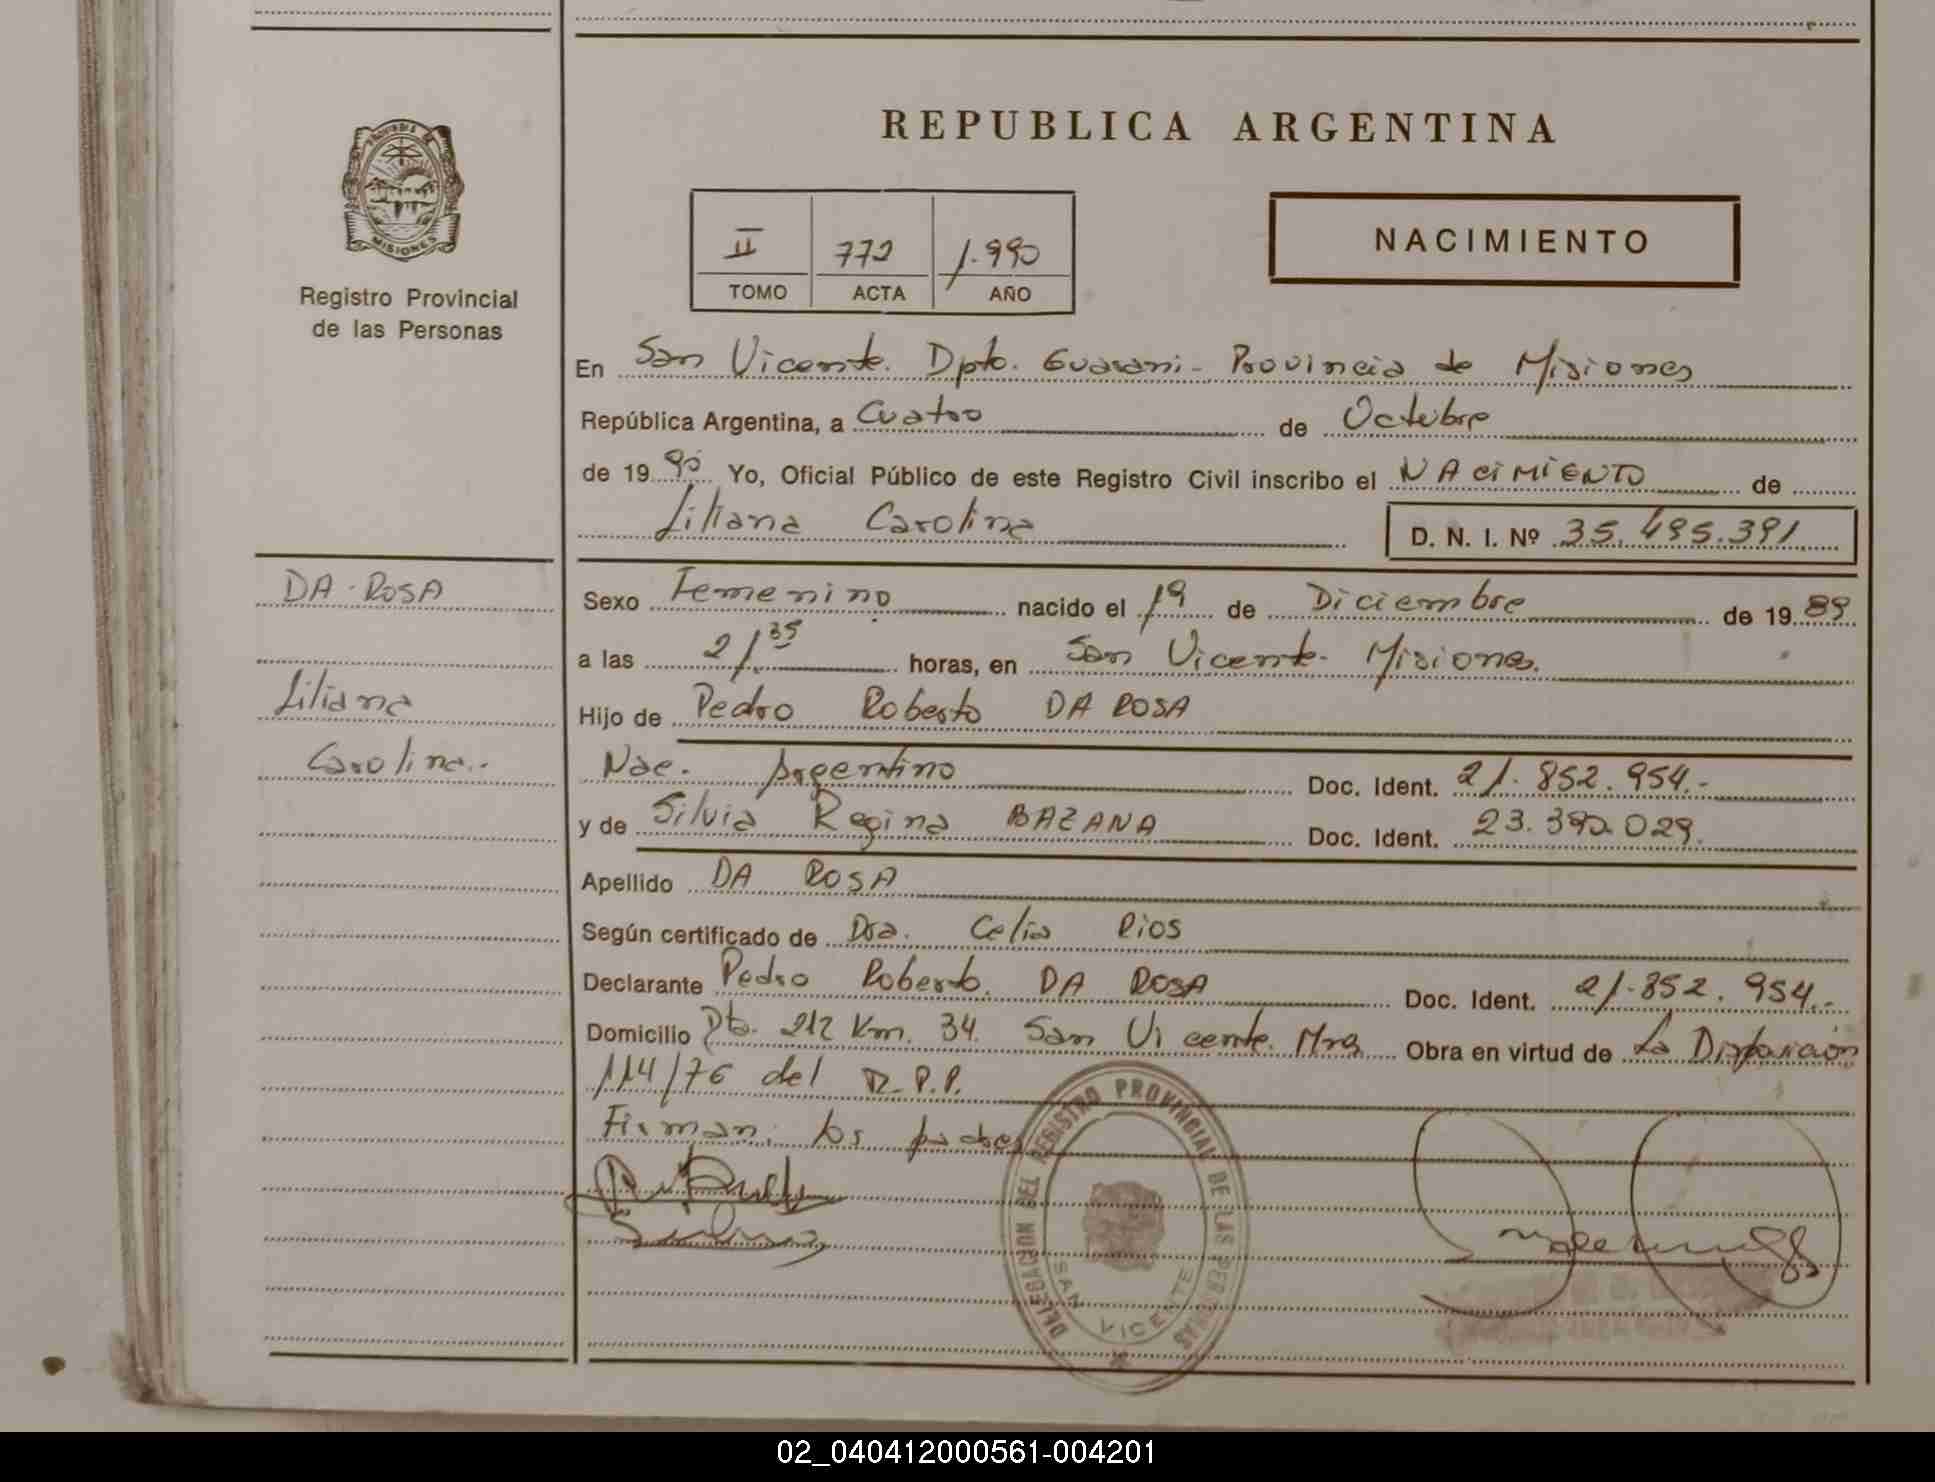 REPUBLICA ARGENTINA
PROVINCIA DE
MISIONES
Registro Provincial
de las Personas
II 772 1.990
TOMO ACTA AÑO
NACIMIENTO
En San Vicente. Dpto. Guarani - Provincia de Misiones
República Argentina, a Cuatro de Octubre
de 19 90 Yo, Oficial Público de este Registro Civil inscribo el NACIMIENTO de
Liliana Carolina D. N. I. Nº 35.495.391
DA-ROSA
Liliana
Carolina.-
Sexo Femenino nacido el 19 de Diciembre de 19 89
a las 21.35 horas, en San Vicente. Misiones.
Hijo de Pedro Roberto DA ROSA
Nac. Argentino Doc. Ident. 21.852.954.-
y de Silvia Regina BAZANA Doc. Ident. 23.392.029.
Apellido DA ROSA
Según certificado de Dra. Celia Rios
Declarante Pedro Roberto. DA ROSA Doc. Ident. 21.852.954.-
Domicilio Rta. 212 Km. 34. San Vicente. Mnes Obra en virtud de La Disposición
114/76 del R.P.P.
Firman: los padres
DELEGACION DEL REGISTRO PROVINCIAL DE LAS PERSONAS
SAN VICENTE
02_040412000561-004201